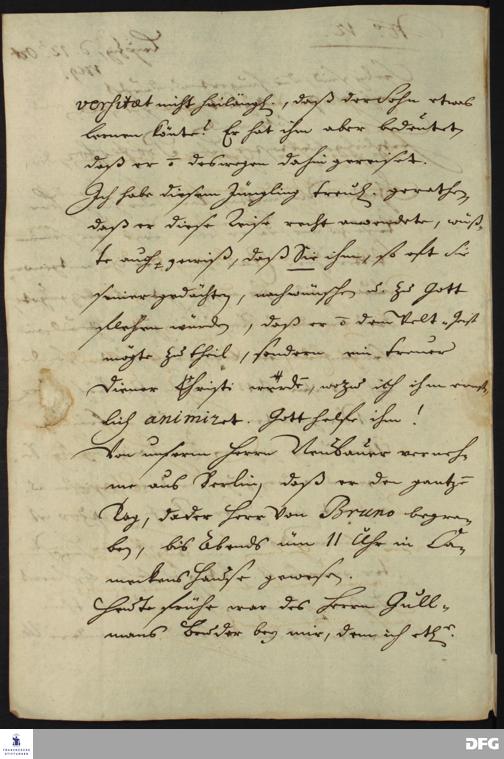 versitæt nicht hinlängl., daß der Sohn etwas
lernen könte? Er hat ihm aber bedeutet,
daß er ō deswegen dahin gereiset.
Ich habe diesem Jüngling treul. gerathen,
daß er diese Reise recht anwendete, wüß-
te auch gewiß, daß Sie ihm, so oft Sie
seiner gedächten, nachwünschen u. zu Gott
flehen würden, daß er ō dem Welt-Geist
mögte zu theil, sondern ein treuer
Diener Christi würde, wozu ich ihn ernst-
lich animiret. Gott helfe ihm!
Von unserm Herrn Neubauer verneh-
me aus Berlin, daß er den gantzen
Tag, da der Herr von Bruno begra-
ben, bis Abends üm 11 Uhr in Ca-
meckens Hause gewesen.
Heute frühe war des Herrn Gull-
manns Bruder bey mir, dem ich etl.
FRANCKESCHE
STIFTUNGEN
DFG